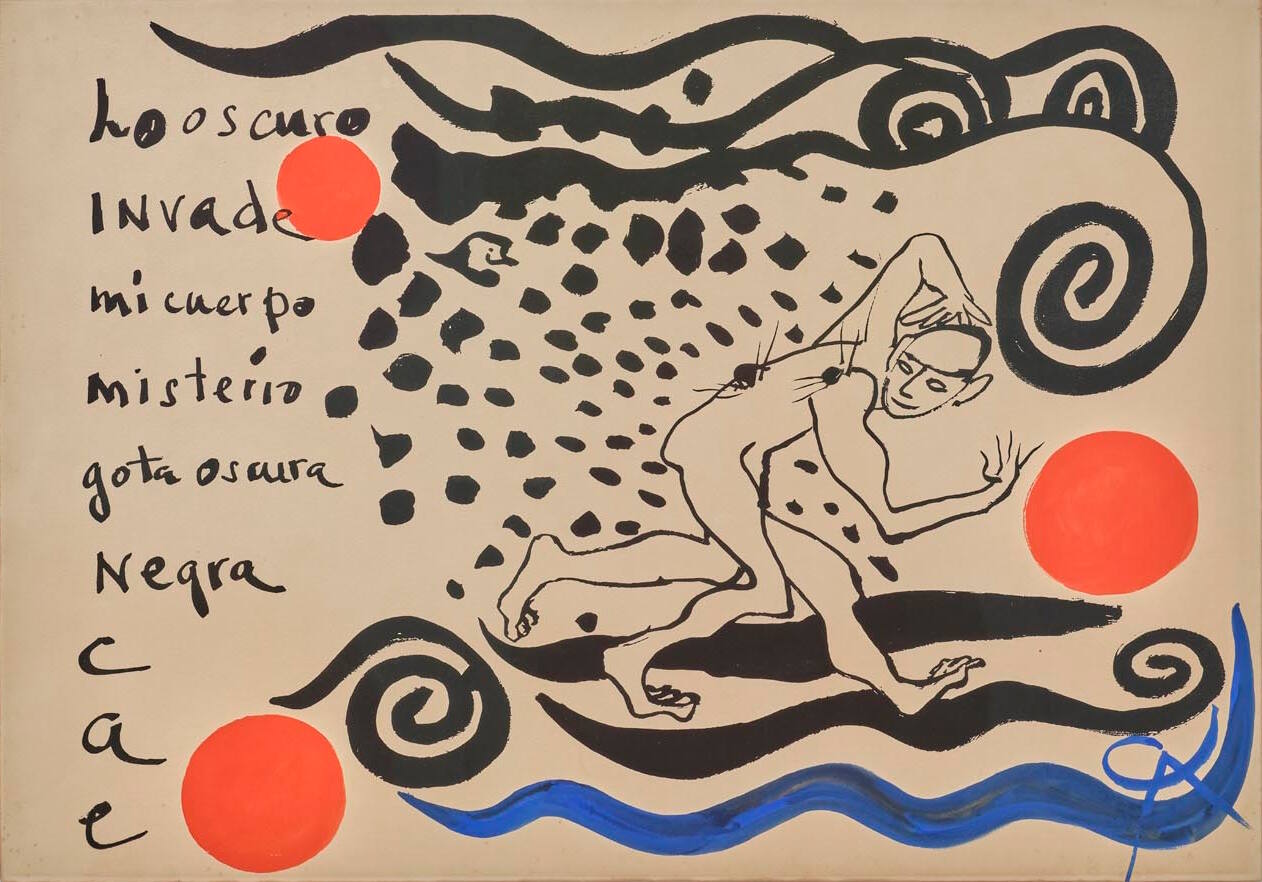 Lo oscuro
INvade
mi cuerpo
misterio
gota oscura
Negra
c
a
e